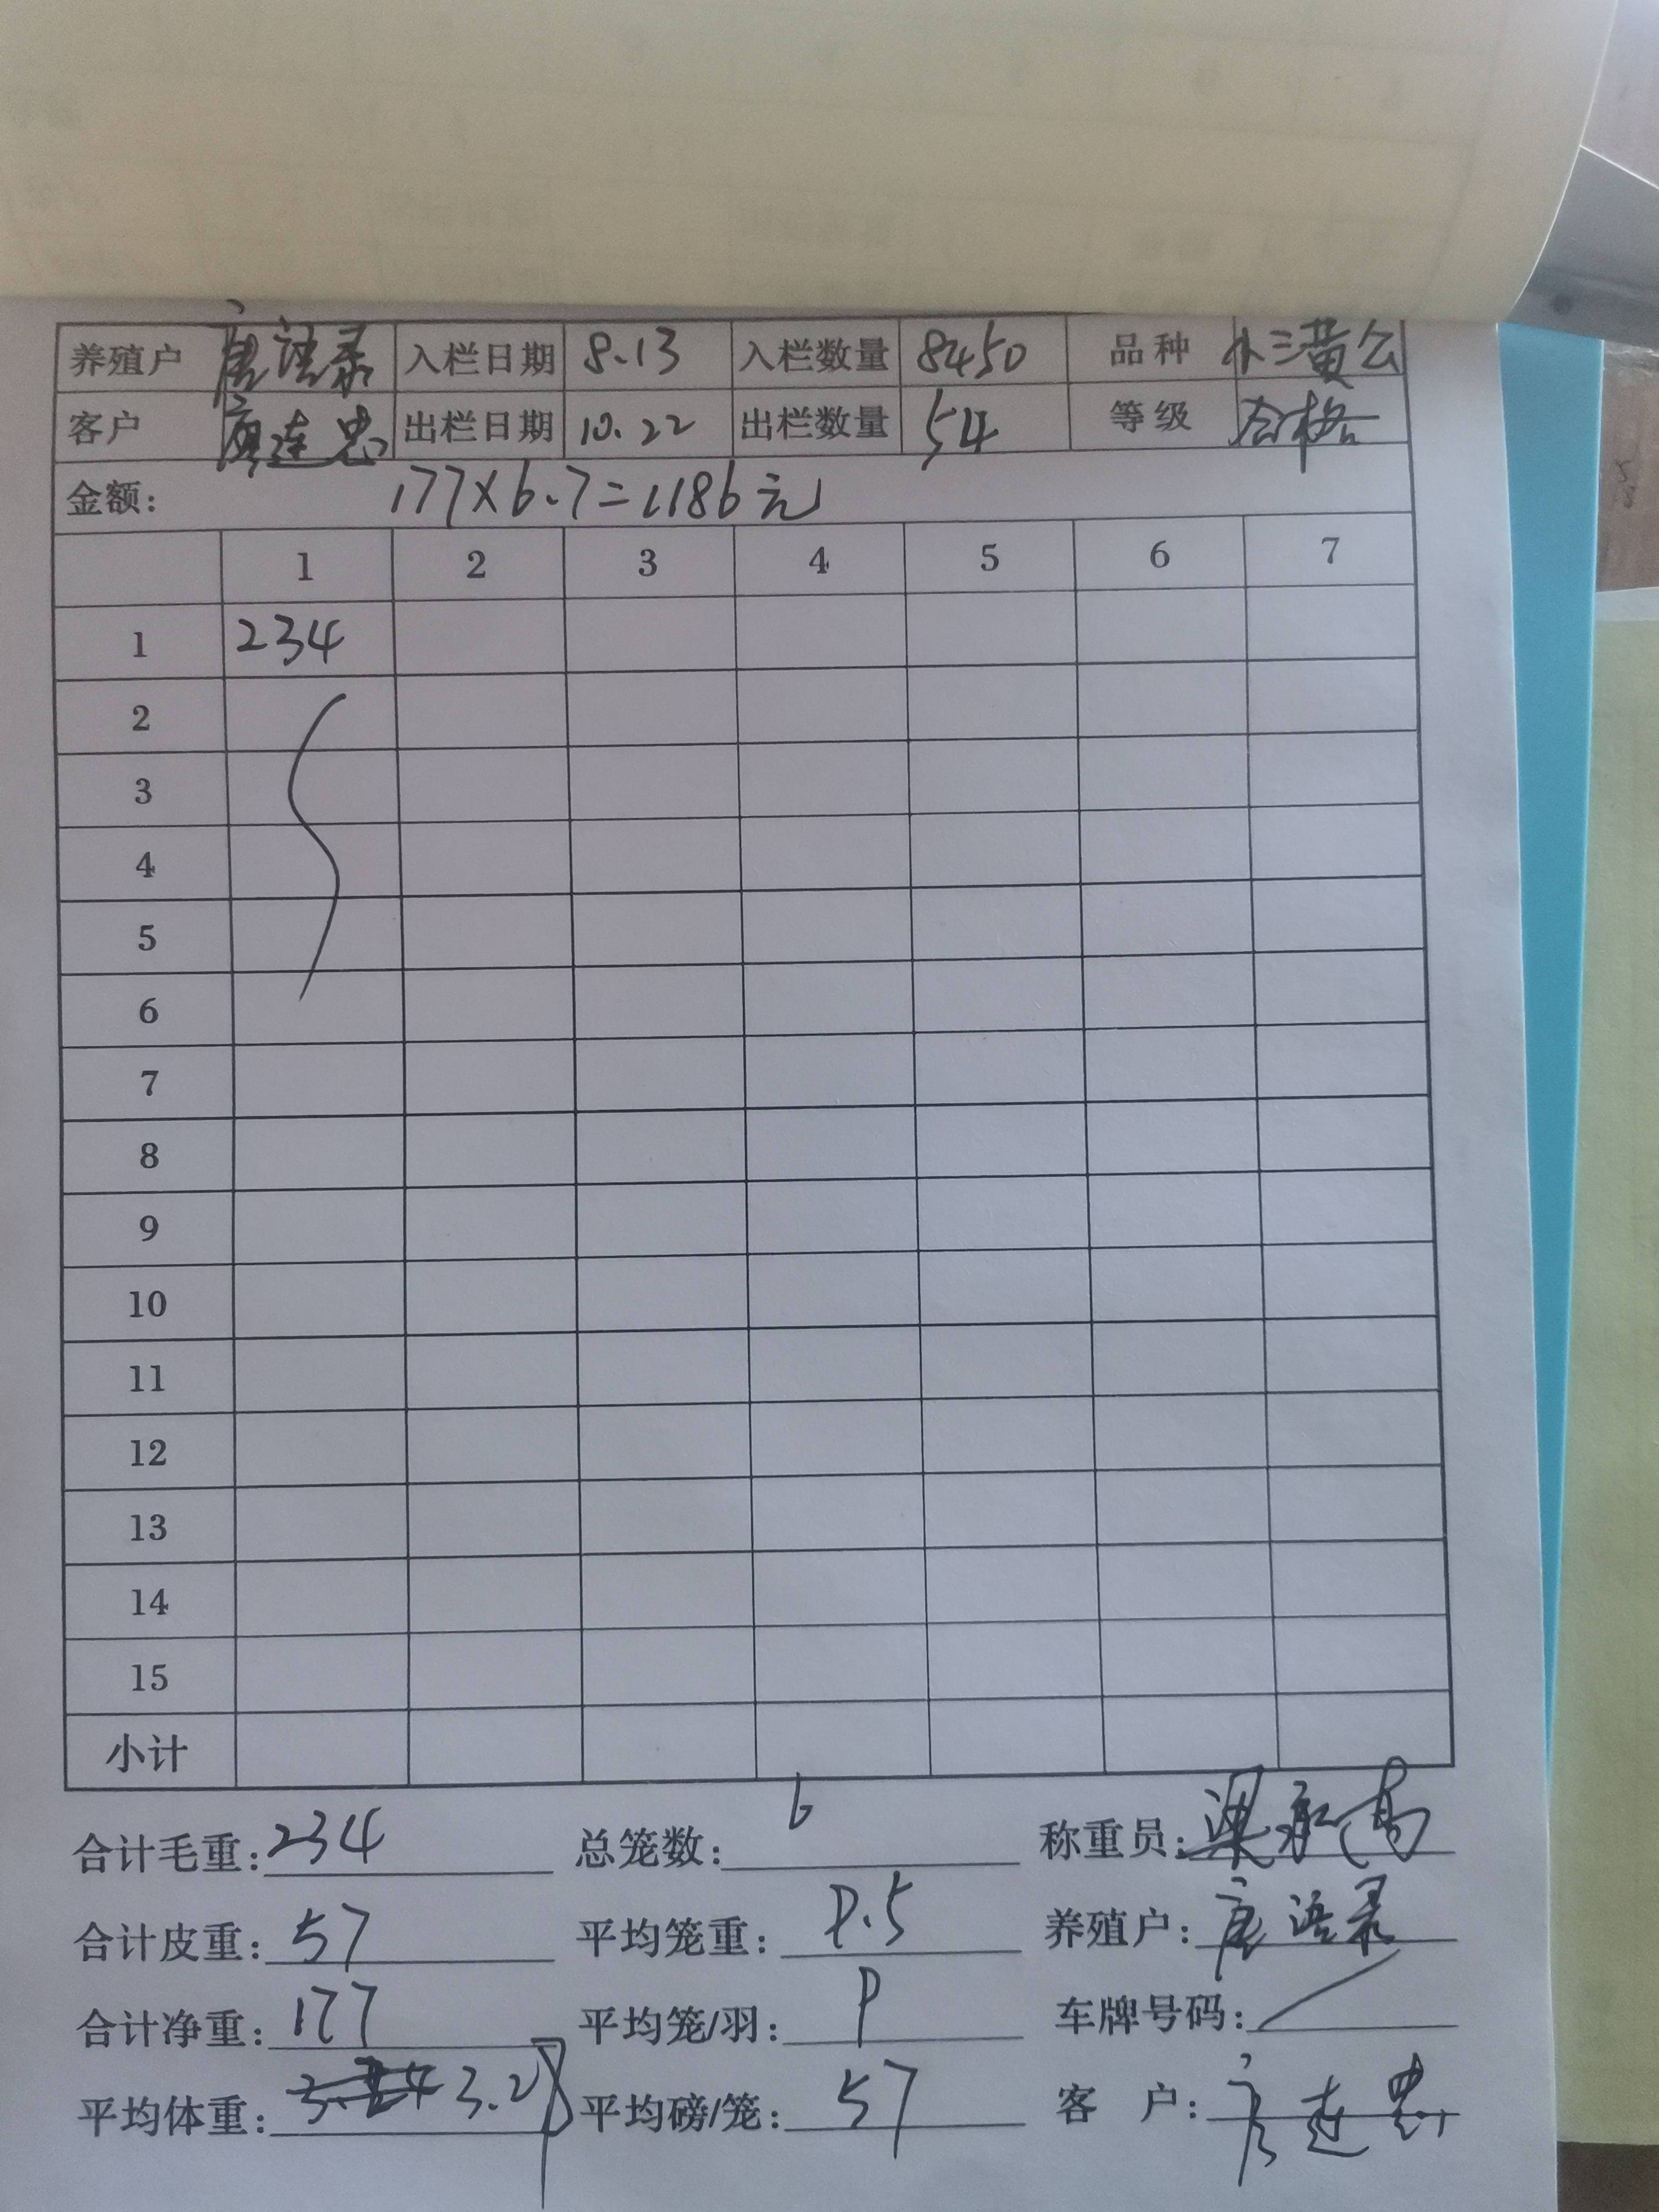 养殖户 唐语录 入栏日期 8.13 入栏数量 8450 品种 小三黄公
客户 廖连忠 出栏日期 10.22 出栏数量 54 等级 合格
金额: 177×6.7=1186元
1 2 3 4 5 6 7
1 234
2
3
4
5
6
7
8
9
10
11
12
13
14
15
小计
合计毛重: 234 总笼数: 6 称重员: 梁
合计皮重: 57 平均笼重: 9.5 养殖户: 唐语录
合计净重: 177 平均笼/羽: 9 车牌号码:
平均体重: 3.28 平均磅/笼: 57 客 户: 廖连忠